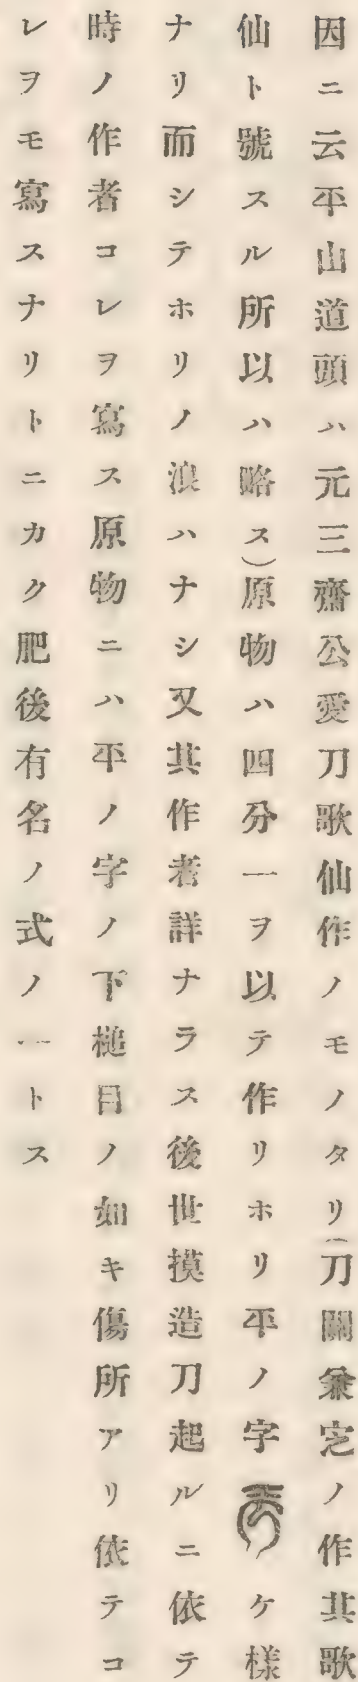 因ニ云平山道頭ハ元三齋公愛刀歌仙作ノモノタリ(刀關兼㝎ノ作其歌
仙ト號スル所以ハ略ス)原物ハ四分一ヲ以テ作リホリ平ノ字ケ樣
ナリ而シテホリノ浪ハナシ又其作者詳ナラス後世摸造刀起ルニ依テ
時ノ作者コレヲ寫ス原物ニハ平ノ字ノ下槌目ノ如キ傷所アリ依テコ
レヲモ寫スナリトニカク肥後有名ノ式ノ一トス